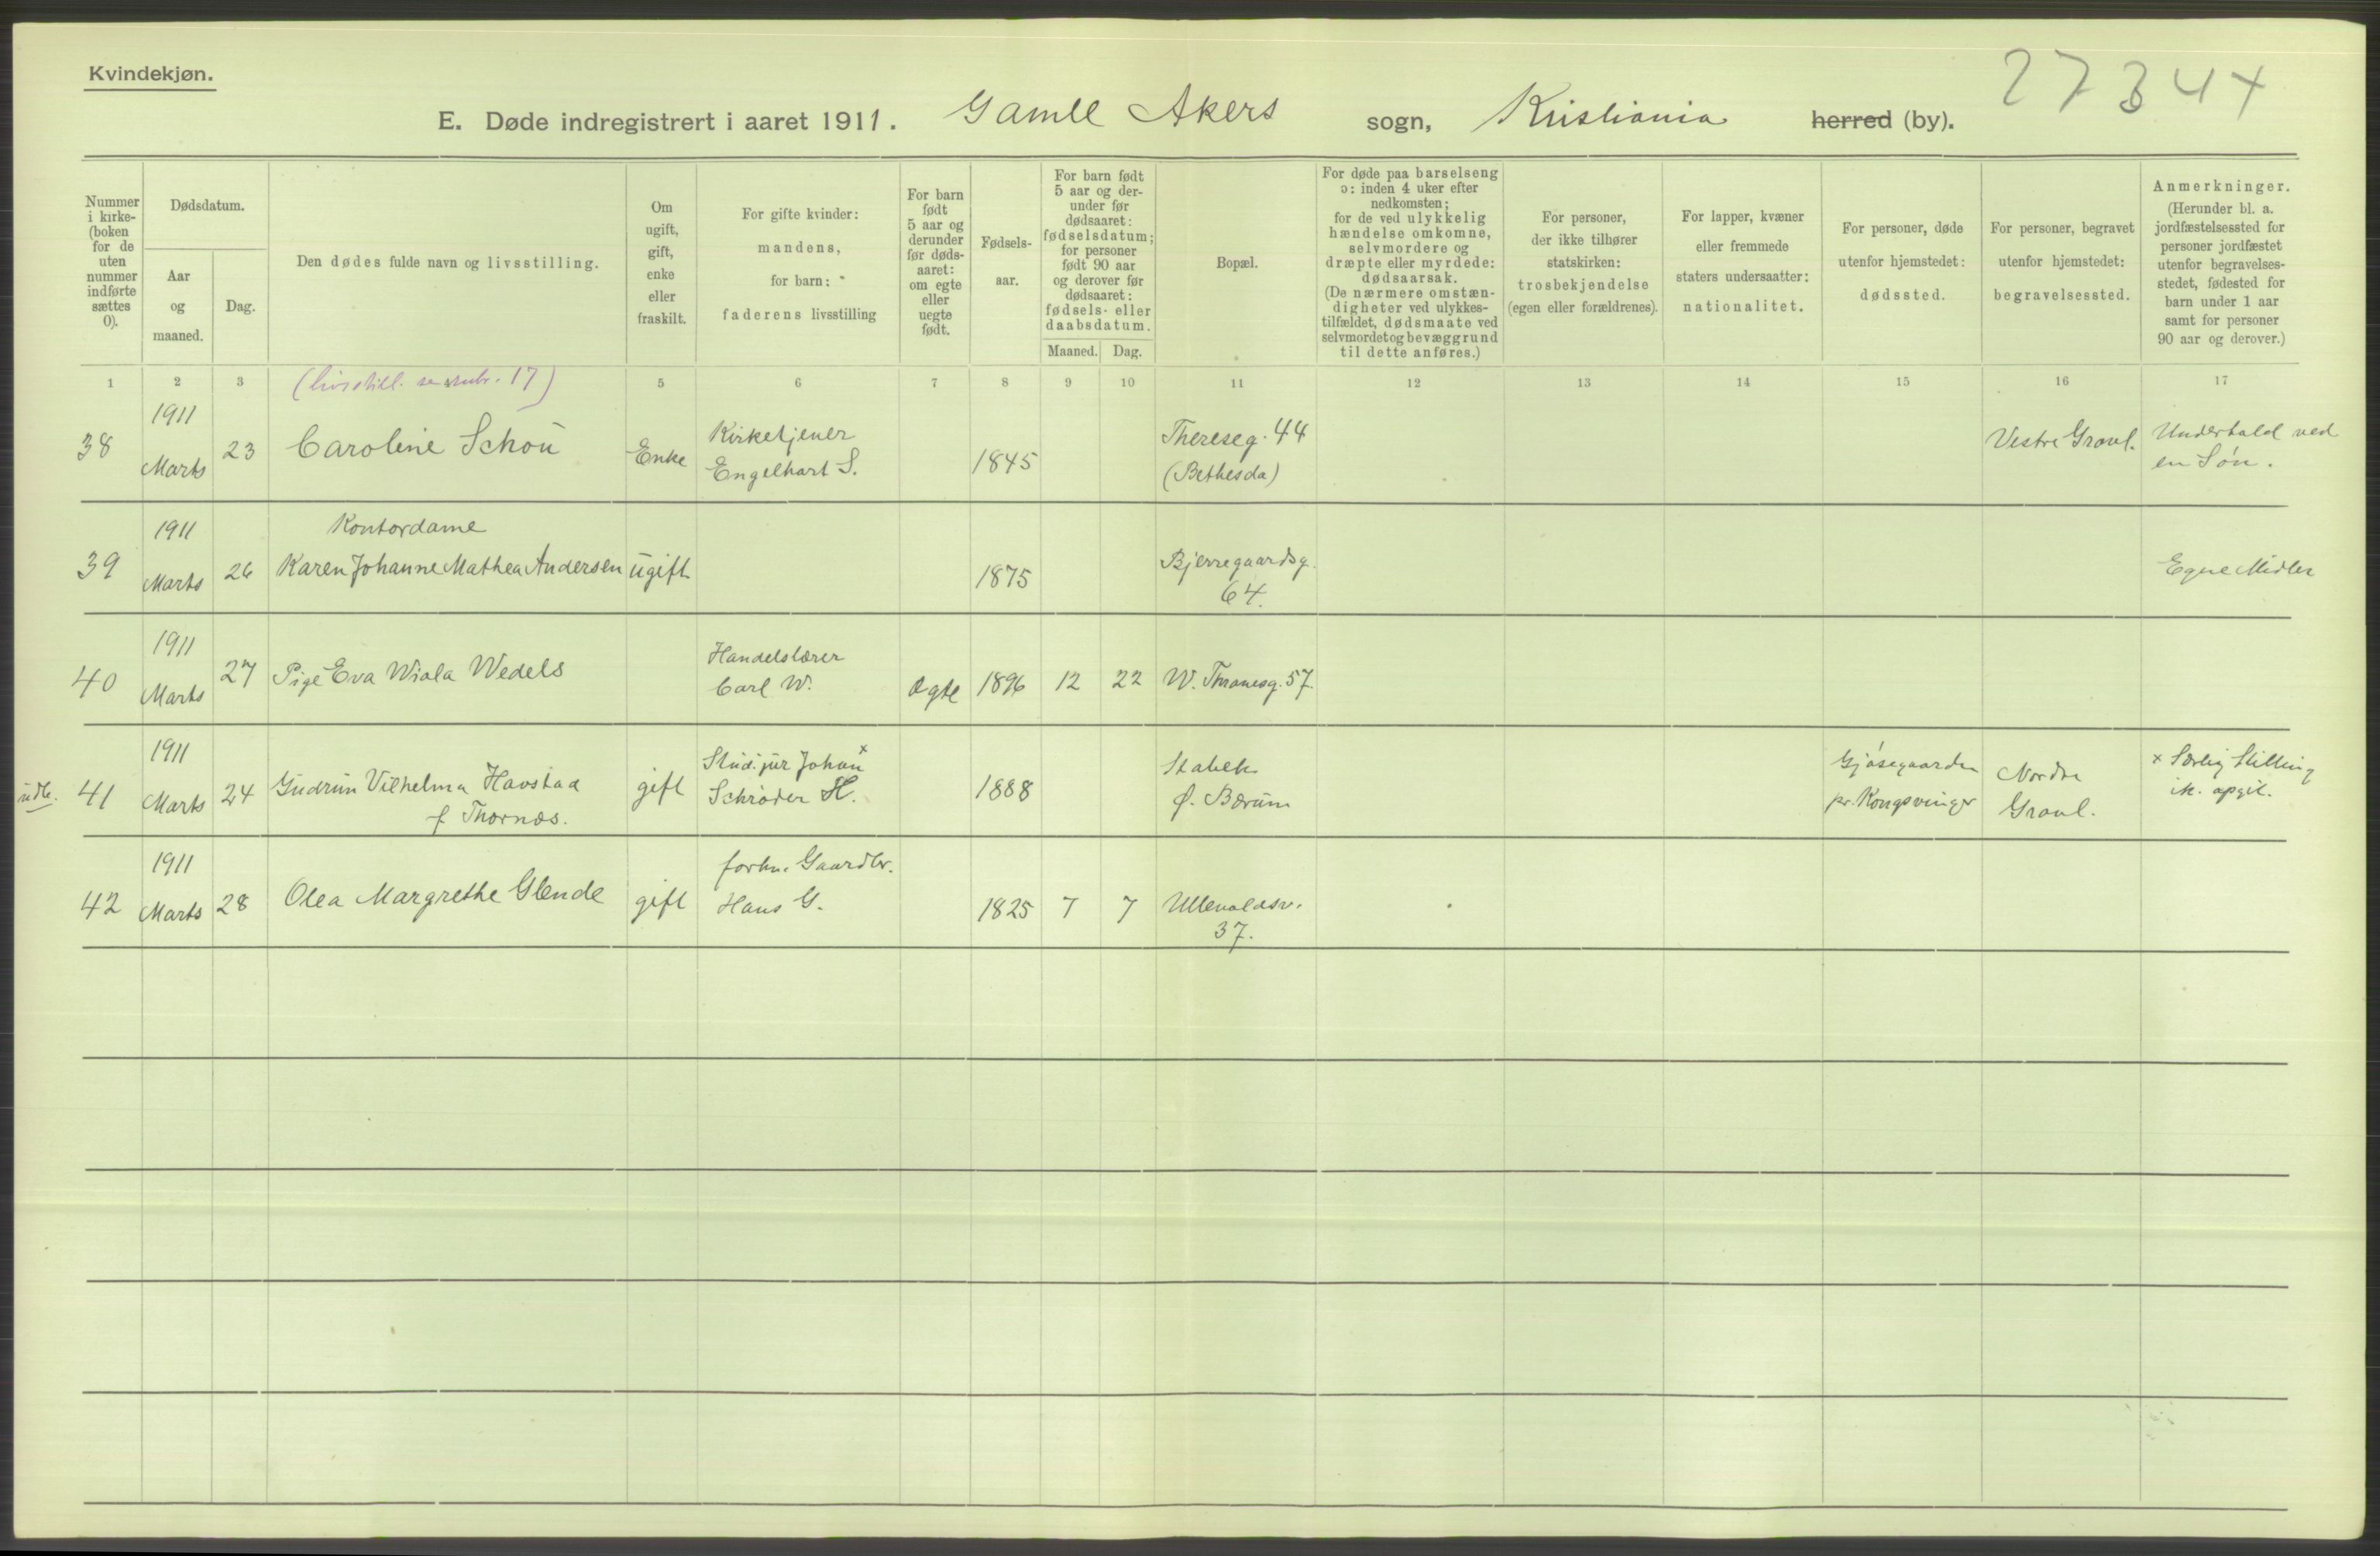 Kvindekjøn.
27344
E. Døde indregistrert i aaret 1911. Gamle Akers sogn, Kristiania herred (by).
Nummer
i kirke-
(boken
for de
uten
nummer
indførte
sættes
0).
Dødsdatum.
Aar
og
maaned.
Dag.
Den dødes fulde navn og livsstilling.
Om
ugift,
gift,
enke
eller
fraskilt.
For gifte kvinder:
mandens,
for barn:
faderens livsstilling
For barn
født
5 aar og
derunder
før døds-
aaret:
om egte
eller
uegte
født.
Fødsels-
aar.
For barn født
5 aar og der-
under før
dødsaaret:
fødselsdatum;
for personer
født 90 aar
og derover før
dødsaaret:
fødsels- eller
daabsdatum.
Maaned. Dag.
Bopæl.
For døde paa barselseng
ɔ: inden 4 uker efter
nedkomsten;
for de ved ulykkelig
hændelse omkomne,
selvmordere og
dræpte eller myrdede:
dødsaarsak.
(De nærmere omstæn-
digheter ved ulykkes-
tilfældet, dødsmaate ved
selvmordet og bevæggrund
til dette anføres.)
For personer,
der ikke tilhører
statskirken:
trosbekjendelse
(egen eller forældrenes).
For lapper, kvæner
eller fremmede
staters undersaatter:
nationalitet.
For personer, døde
utenfor hjemstedet:
dødssted.
For personer, begravet
utenfor hjemstedet:
begravelsessted.
Anmerkninger.
(Herunder bl. a.
jordfæstelsessted for
personer jordfæstet
utenfor begravelses-
stedet, fødested for
barn under 1 aar
samt for personer
90 aar og derover.)
1 2 3 (livsstill. se rubr. 17) 5 6 7 8 9 10 11 12 13 14 15 16 17
38
1911
Marts
23
Caroline Schou
Enke
Kirketjener
Engelhart S.
1845
Thereseg. 44
(Bethesda)
Vestre Gravl.
Underhold ved
en Søn.
39
1911
Marts
26
Kontordame
Karen Johanne Mathea Andersen
ugift
1875
Bjerregaardsg.
64.
Egne Midler
40
1911
Marts
27
Pige Eva Wiola Wedels
Handelslærer
Carl W.
Ægte
1896
12
22
W. Thranesg. 57.
udb.
41
1911
Marts
24
Gudrun Vilhelma Havstad
f Thornæs.
gift
Stud. jur Johan x
Schrøder H.
1888
Stabek
Ø. Bærum
Gjøsegaarden
pr. Kongsvinger
Nordre
Gravl.
x Særlig Stilling
ik. opgit.
42
1911
Marts
28
Olea Margrethe Glende
gift
forhv. Gaardbr.
Hans G.
1825
7
7
Ullevoldsv.
37.